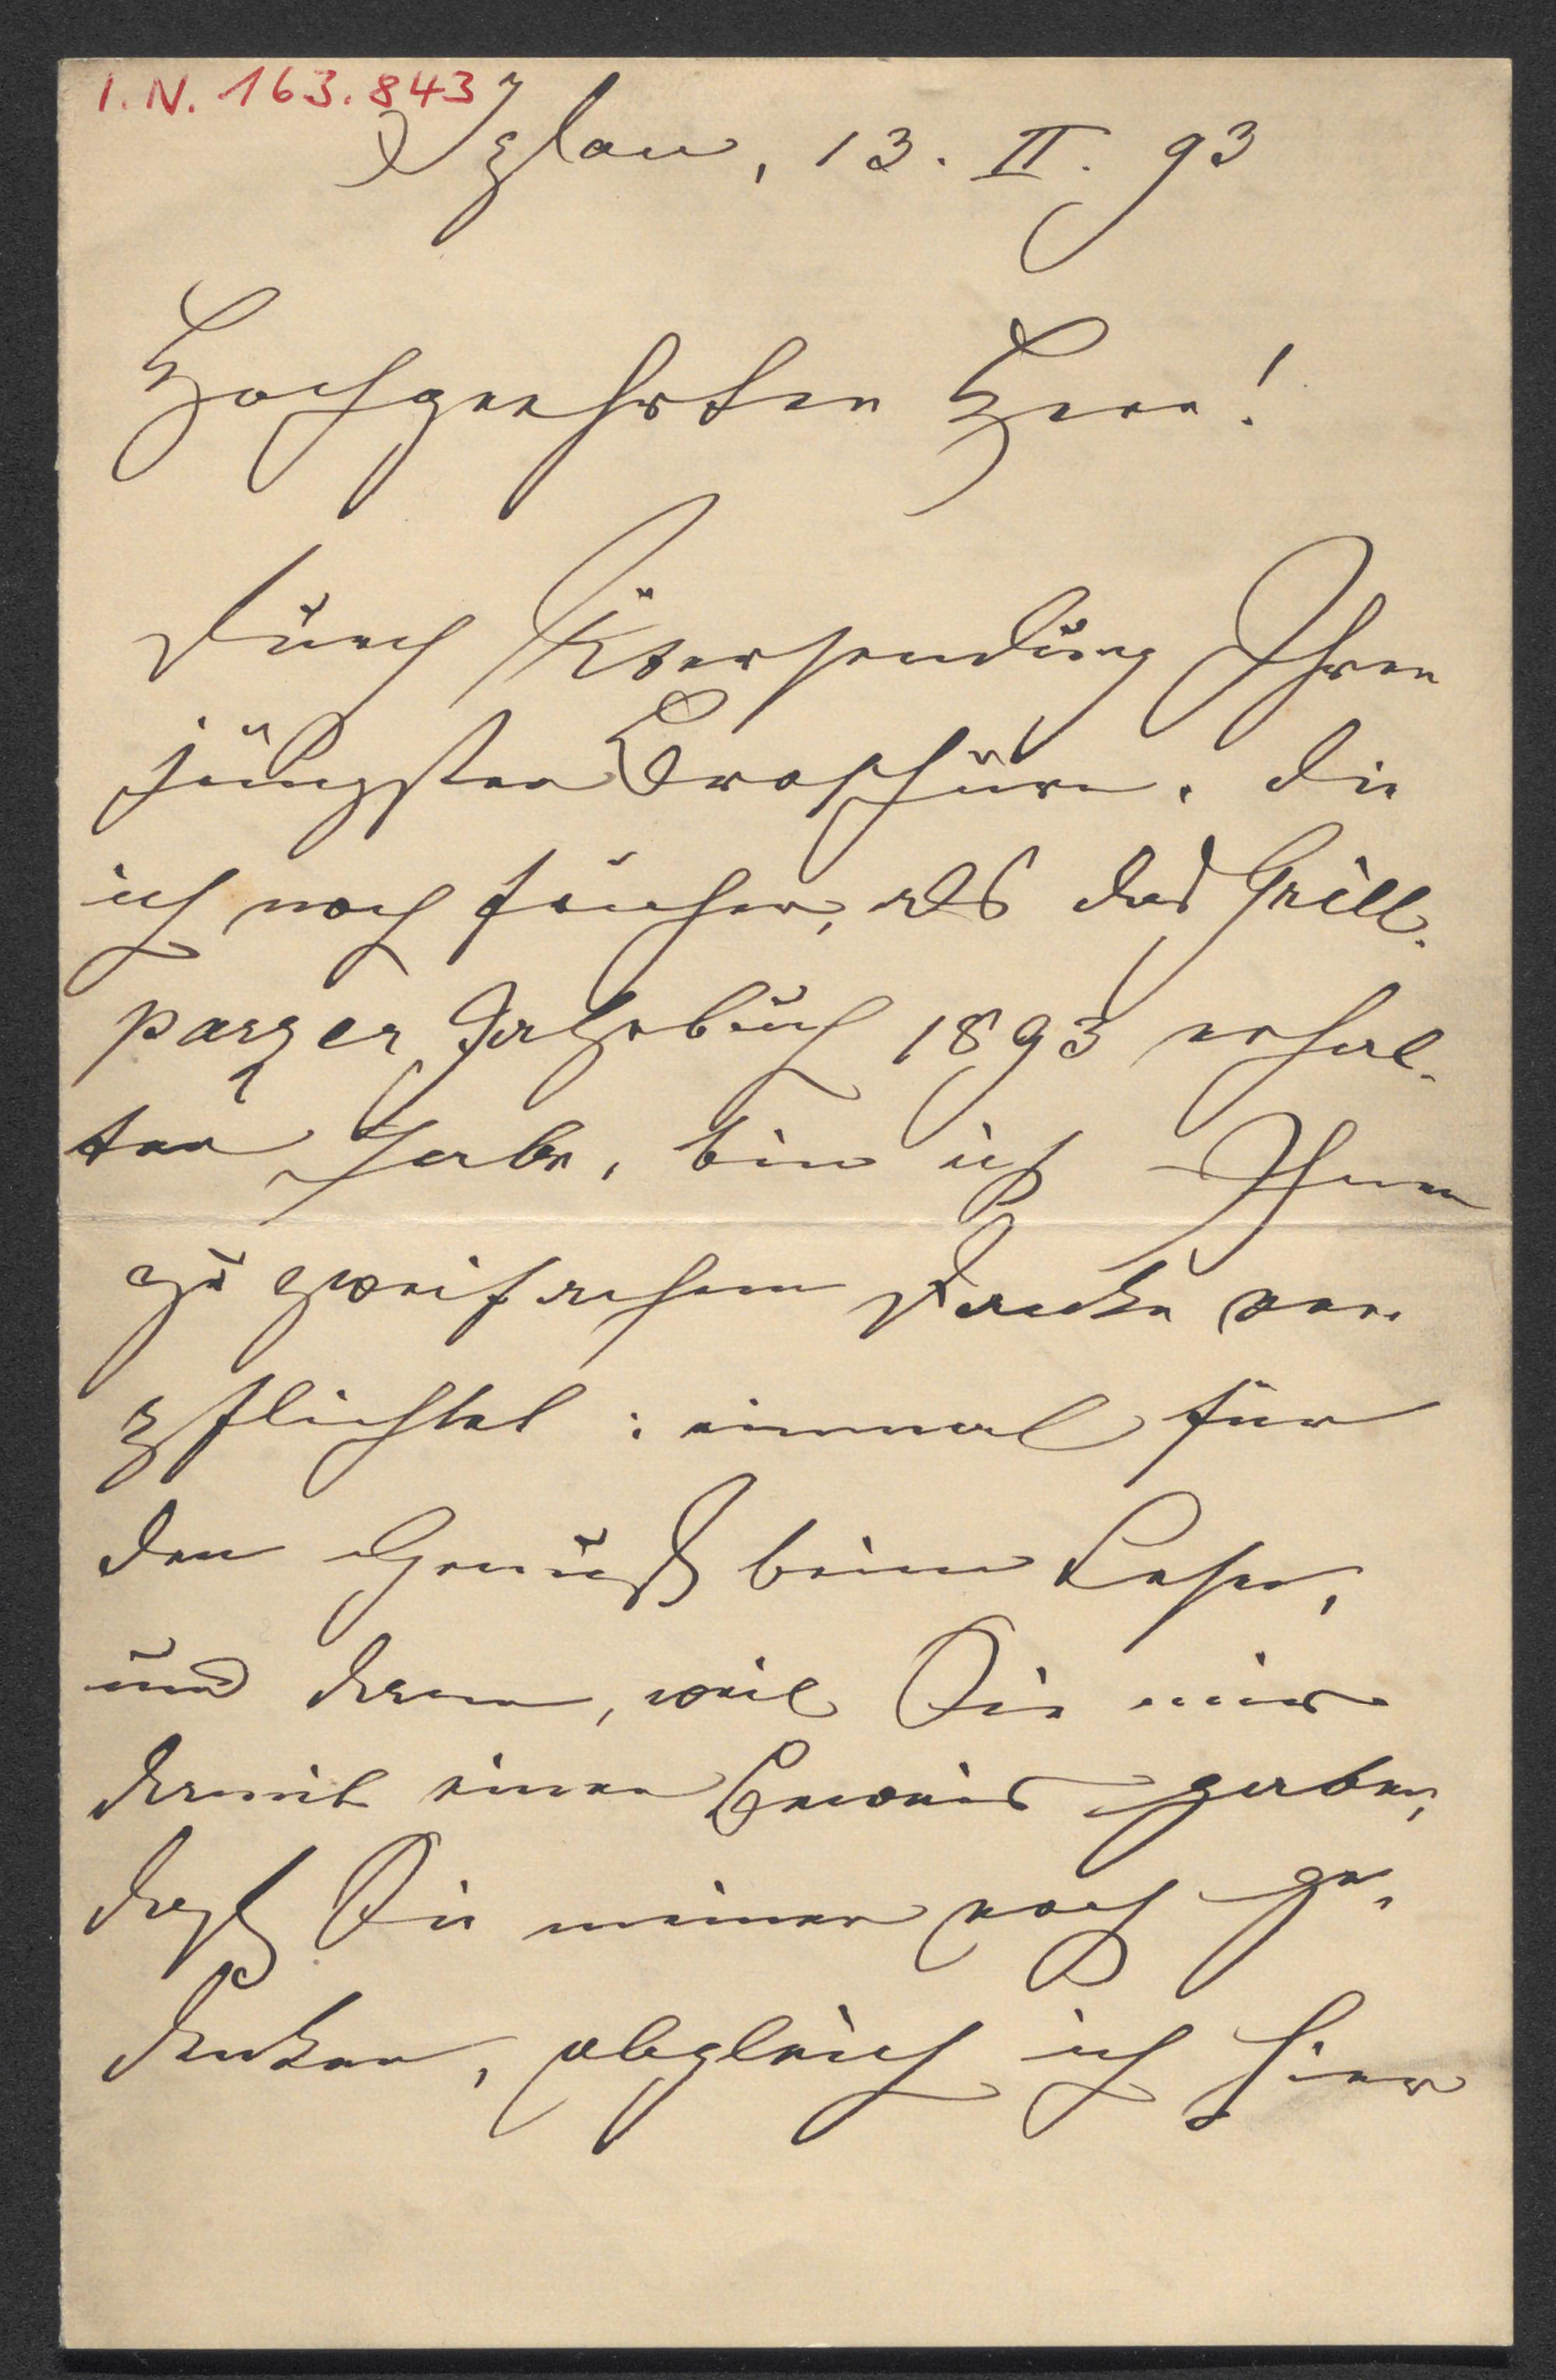 I.N. 163.843
Iglau, 13. II. 93
Hochgeehrter Herr!
Durch Übersendung Ihrer
jüngsten Broschüre, die
ich noch früher, als das Grill-
parzer Jahrbuch 1893 erhal-
ten habe, bin ich Ihnen
zu zweifachem Danke ver-
pflichtet: einmal für
den Genuß beim Lesen,
und dann, weil Sie mir
damit einen Beweis gaben,
daß Sie meiner noch ge-
denken, obgleich ich hier